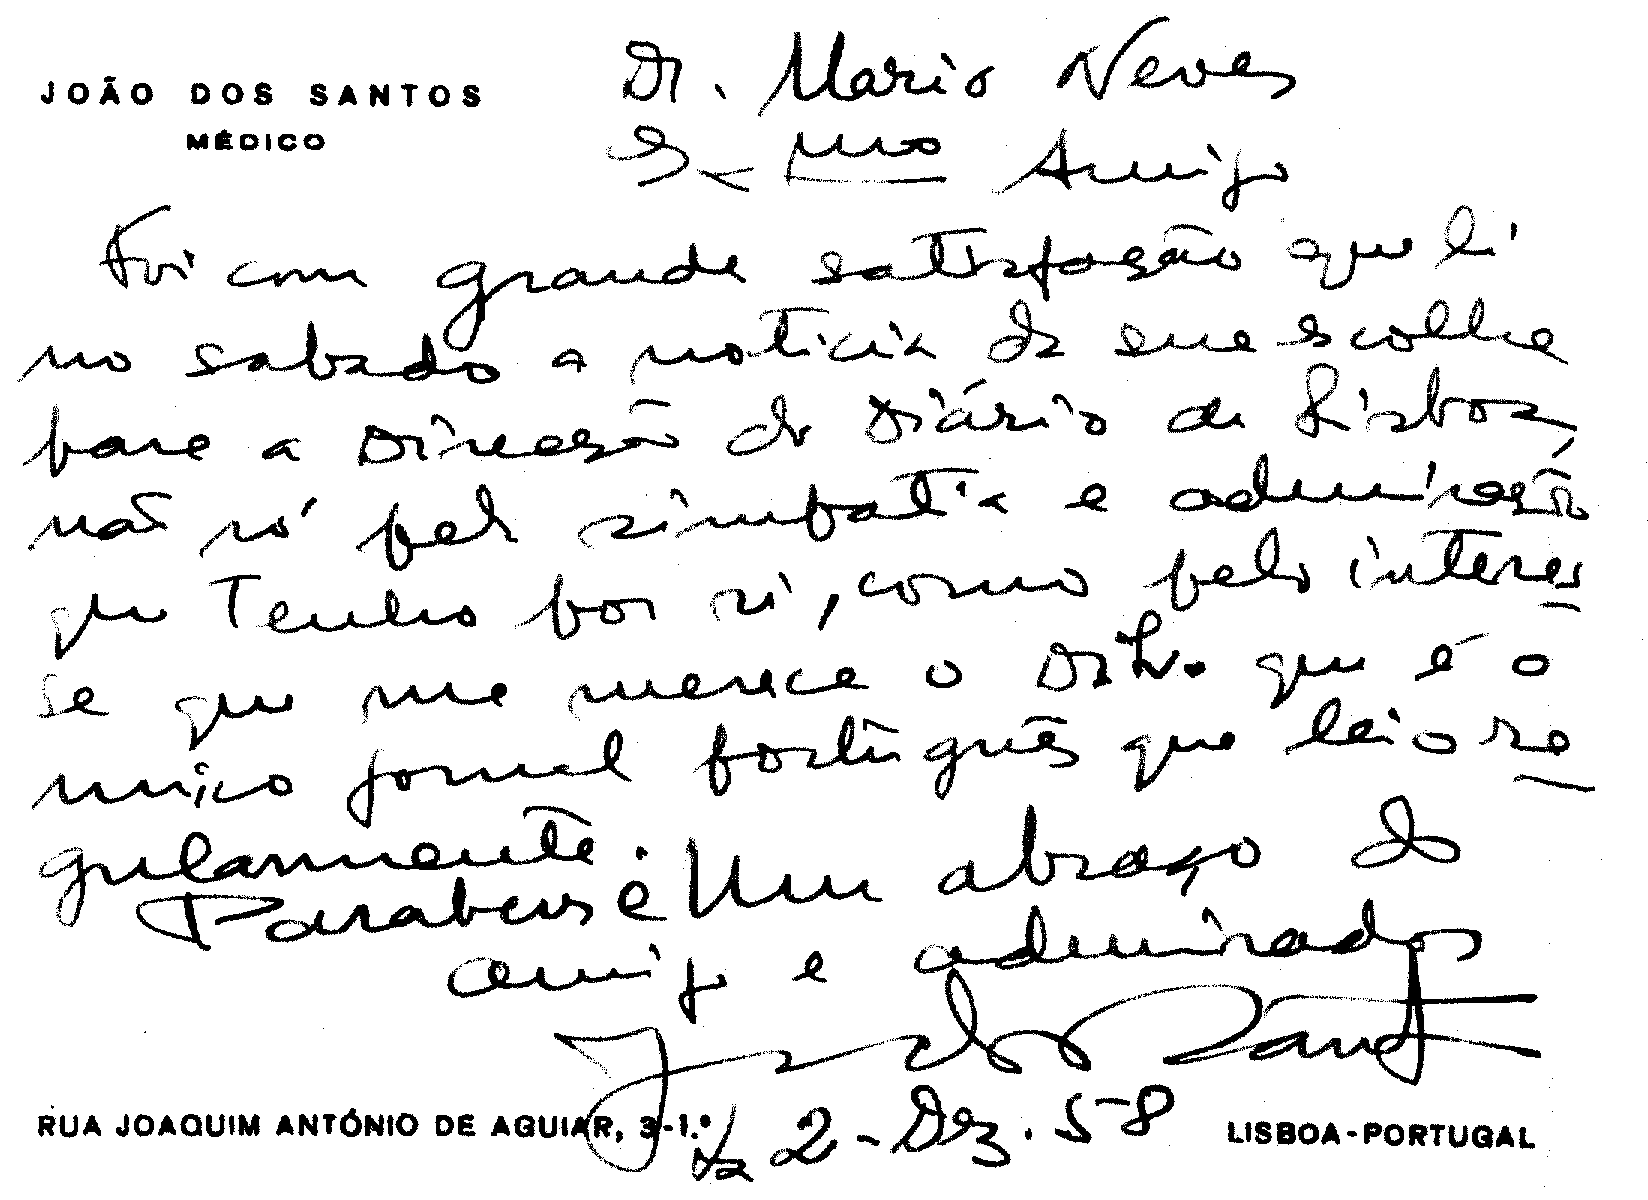 JOÃO DOS SANTOS
MÉDICO
Dr. Mario Neves
Exmo Amigo
Foi com grande satisfação que li
no sabado a noticia da sua escolha
para a Direcção do Diário de Lisboa,
não só pela simpatia e admiração
que tenho por si, como pelo interes
se que me merece o D. L. que é o
unico jornal português que leio re
gularmente.
Parabens e Um abraço do
amigo e admirador
João dos Santos
2-Dez. 58
RUA JOAQUIM ANTÓNIO DE AGUIAR, 3-1.º
LISBOA-PORTUGAL